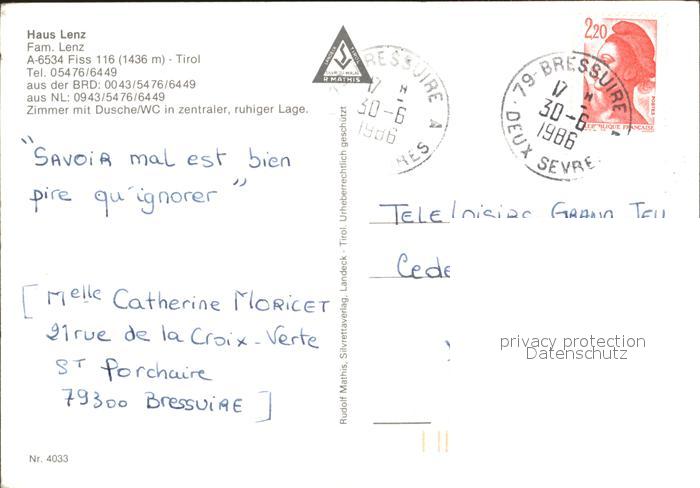 Haus Lenz
Fam. Lenz
A-6534 Fiss 116 (1436 m) - Tirol
Tel. 05476/6449
aus der BRD: 0043/5476/6449
aus NL: 0943/5476/6449
Zimmer mit Dusche/WC in zentraler, ruhiger Lage.
"SAVOIR mal est bien
pire qu'ignorer"
[Melle Catherine MORICET
21 rue de la Croix-Verte
ST Porchaire
79300 BRESSUIRE]
Nr. 4033
R MATHIS
Rudolf Mathis, Silvrettaverlag, Landeck - Tirol. Urheberrechtlich geschützt
BRESSUIRE A
17 H
30-6
1986
RES
79-BRESSUIRE
17 H
30-6
1986
DEUX SEVRE
2,20
POSTES
REPUBLIQUE FRANCAISE
TELE Loisirs GRAND JEU
Cede
privacy protection
Datenschutz